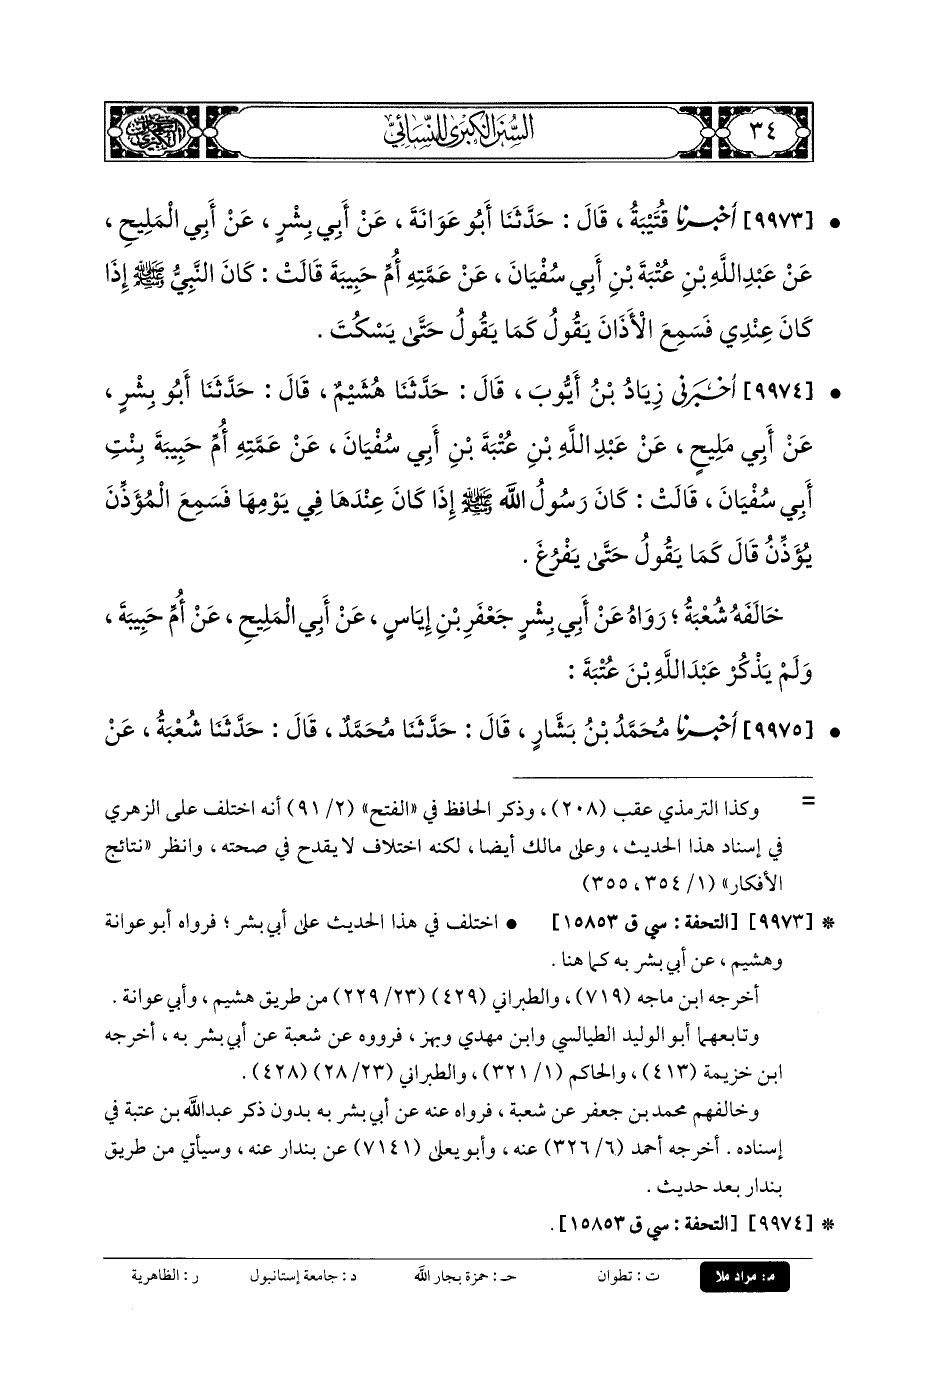 ٣٤
السنن الكبرى للنسائي
• [٩٩٧٣] أخبرنا قُتَيْبَةُ ، قَالَ : حَدَّثَنَا أَبُو عَوَانَةَ ، عَنْ أَبِي بِشْرٍ ، عَنْ أَبِي الْمَلِيحِ ،
عَنْ عَبْدِ اللَّهِ بْنِ عُتْبَةَ بْنِ أَبِي سُفْيَانَ ، عَنْ عَمَّتِهِ أُمِّ حَبِيبَةَ قَالَتْ : كَانَ النَّبِيُّ ﷺ إِذَا
كَانَ عِنْدِي فَسَمِعَ الْأَذَانَ يَقُولُ كَمَا يَقُولُ حَتَّى يَسْكُتَ .
• [٩٩٧٤] أخبرني زِيَادُ بْنُ أَيُّوبَ ، قَالَ : حَدَّثَنَا هُشَيْمٌ ، قَالَ : حَدَّثَنَا أَبُو بِشْرٍ ،
عَنْ أَبِي مَلِيحٍ ، عَنْ عَبْدِ اللَّهِ بْنِ عُتْبَةَ بْنِ أَبِي سُفْيَانَ ، عَنْ عَمَّتِهِ أُمِّ حَبِيبَةَ بِنْتِ
أَبِي سُفْيَانَ ، قَالَتْ : كَانَ رَسُولُ اللَّه ﷺ إِذَا كَانَ عِنْدَهَا فِي يَوْمِهَا فَسَمِعَ الْمُؤَذِّنَ
يُؤَذِّنُ قَالَ كَمَا يَقُولُ حَتَّى يَفْرُغَ .
خَالَفَهُ شُعْبَةُ ؛ رَوَاهُ عَنْ أَبِي بِشْرٍ جَعْفَرِ بْنِ إِيَاسٍ ، عَنْ أَبِي الْمَلِيحِ ، عَنْ أُمِّ حَبِيبَةَ ،
وَلَمْ يَذْكُرْ عَبْدَ اللَّهِ بْنَ عُتْبَةَ :
• [٩٩٧٥] أخبرنا مُحَمَّدُ بْنُ بَشَّارٍ ، قَالَ : حَدَّثَنَا مُحَمَّدٌ ، قَالَ : حَدَّثَنَا شُعْبَةُ ، عَنْ
= وكذا الترمذي عقب (٢٠٨) ، وذكر الحافظ في «الفتح» (٢/ ٩١) أنه اختلف على الزهري
في إسناد هذا الحديث ، وعلى مالك أيضا ، لكنه اختلاف لا يقدح في صحته ، وانظر «نتائج
الأفكار» (١/ ٣٥٤، ٣٥٥)
* [٩٩٧٣] [التحفة : سي ق ١٥٨٥٣] • اختلف في هذا الحديث على أبي بشر ؛ فرواه أبو عوانة
وهشيم ، عن أبي بشر به كما هنا .
أخرجه ابن ماجه (٧١٩) ، والطبراني (٤٢٩) (٢٣/ ٢٢٩) من طريق هشيم ، وأبي عوانة .
وتابعهما أبو الوليد الطيالسي وابن مهدي وبهز ، فرووه عن شعبة عن أبي بشر به ، أخرجه
ابن خزيمة (٤١٣) ، والحاكم (١/ ٣٢١) ، والطبراني (٢٣/ ٢٨) (٤٢٨) .
وخالفهم محمد بن جعفر عن شعبة ، فرواه عنه عن أبي بشر به بدون ذكر عبدالله بن عتبة في
إسناده . أخرجه أحمد (٦/ ٣٢٦) عنه ، وأبو يعلى (٧١٤١) عن بندار عنه ، وسيأتي من طريق
بندار بعد حديث .
* [٩٩٧٤] [التحفة : سي ق ١٥٨٥٣] .
م: مراد ملا ت : تطوان حـ : حمزة بجار الله د : جامعة إستانبول ر : الظاهرية